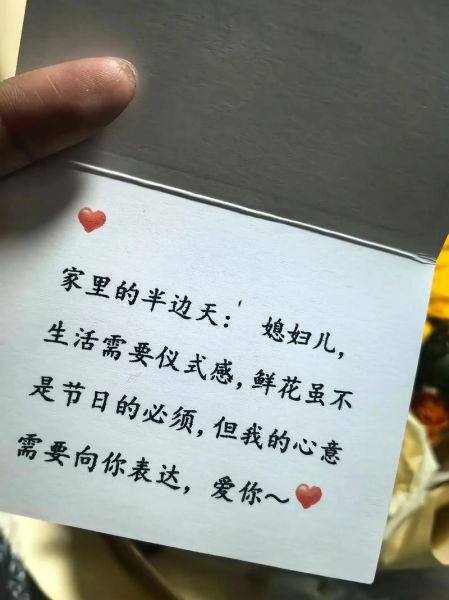 家里的半边天： 媳妇儿，
生活需要仪式感，鲜花虽不
是节日的必须，但我的心意
需要向你表达，爱你～